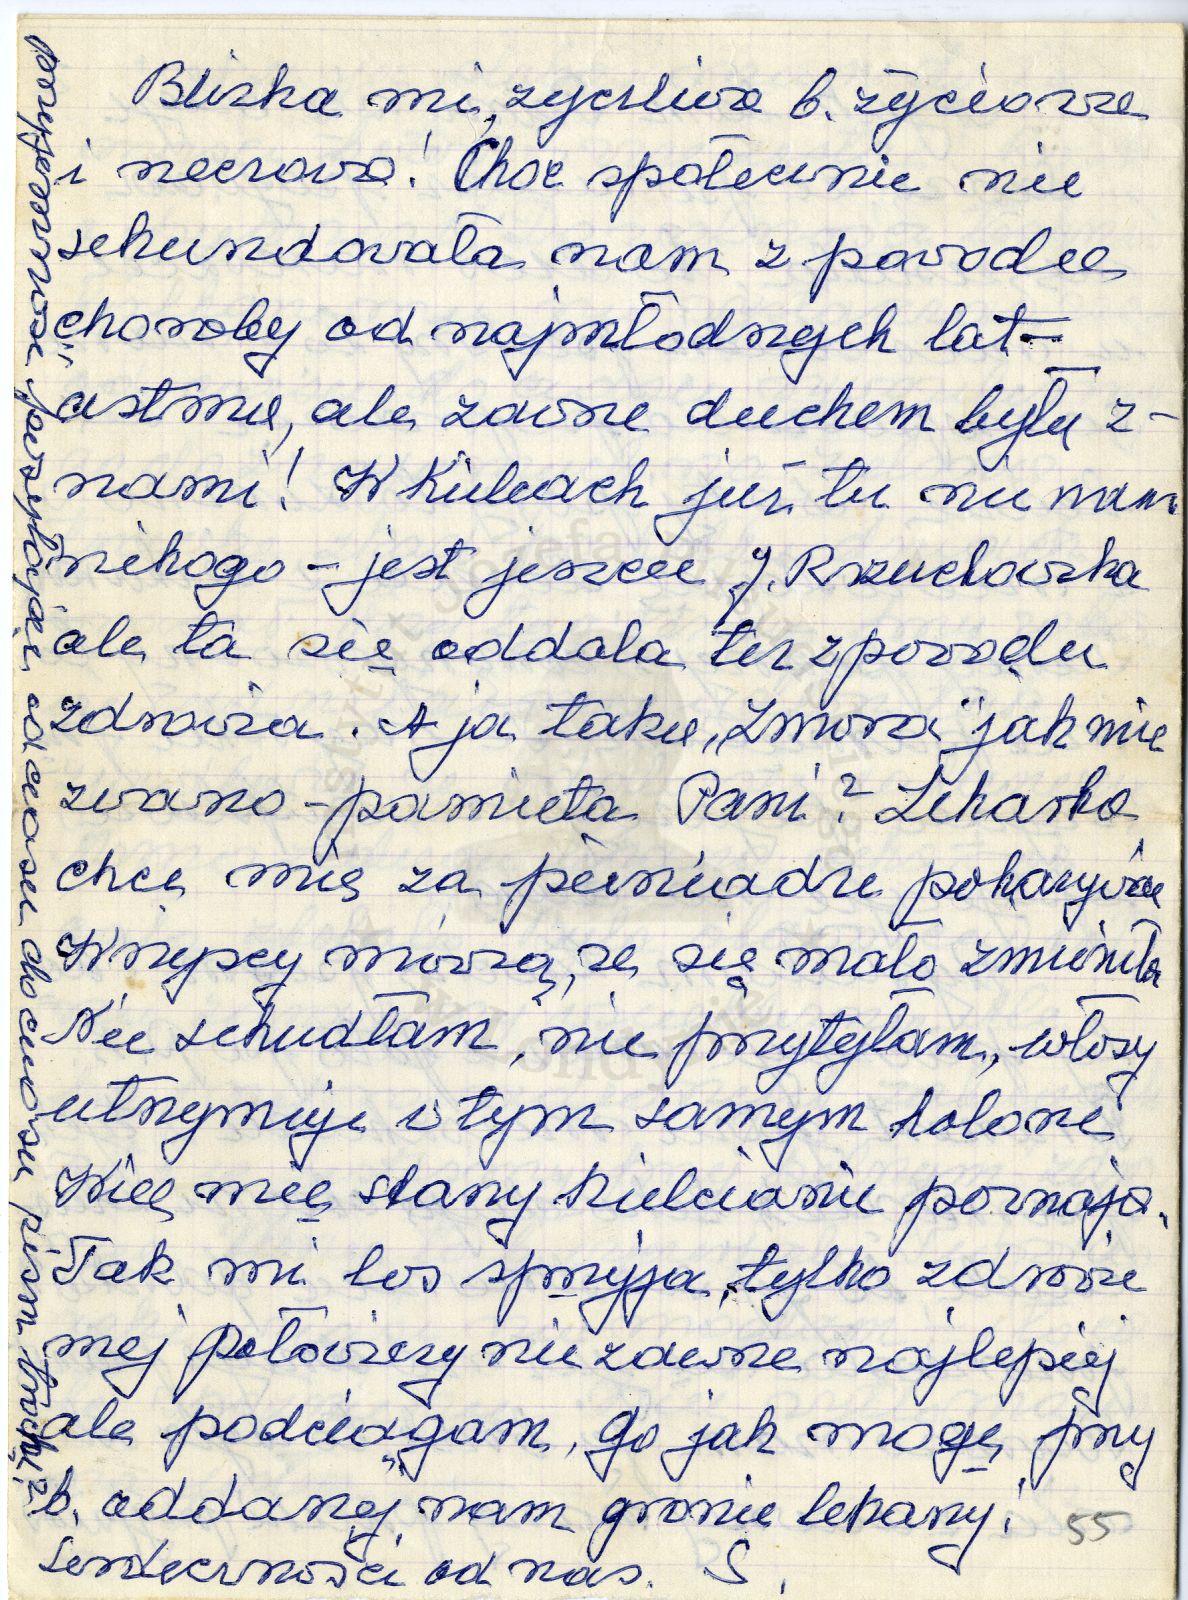 Bliska mi, życzliwa b. życiowa
i rzeczowa! Choć społecznie nie
sekundowała nam z powodu
choroby od najmłodszych lat –
astmę, ale zawsze duchem była z
nami! W Kielcach już tu nie mam
nikogo – jest jeszcze J. Rzuchowska
ale ta się oddala też z powodu
zdrowia. A ja taka „Zmora" jak mnie
zwano – pamięta Pani? Lekarka
chce mię za pieniądze pokazywać
Wszyscy mówią, że się mało zmieniła
Nie schudłam, nie przytyłam, włosy
utrzymuję w tym samym kolorze
Więc mię starzy kielcianie poznają.
Tak mi los sprzyja, tylko zdrowie
mej połowiczy nie zawsze najlepiej
ale podciągam go jak mogę przy
b. oddanej nam gronie lekarzy!
Serdeczności od nas. S.
55
przyjemność przesyłając od czasu do czasu pism